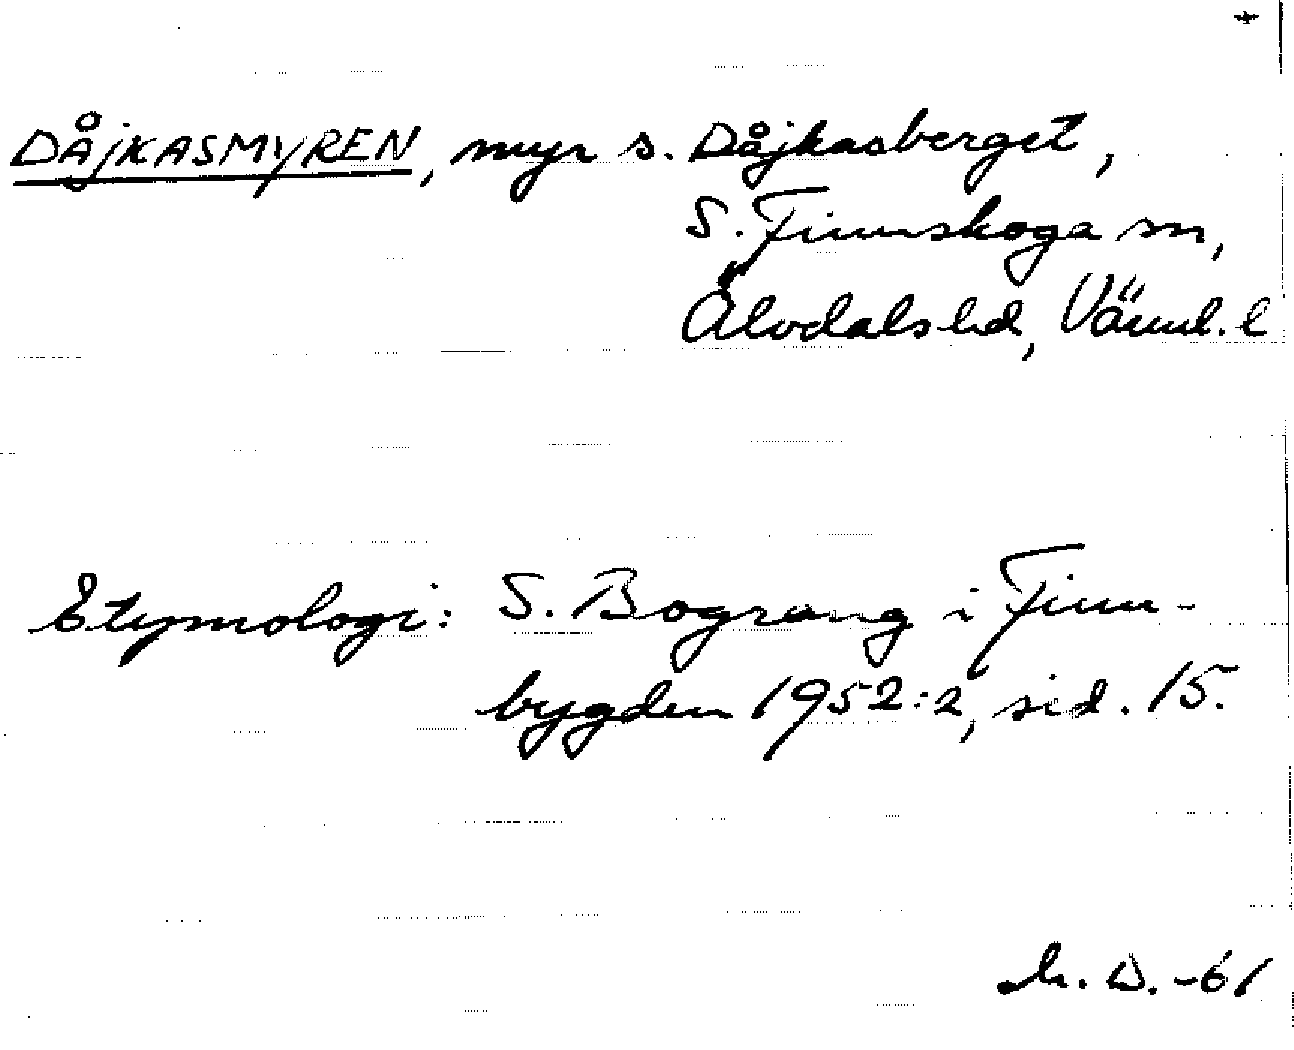 DÅJKASMYREN, myr s. Dåjkasberget,
S. Finnskoga sn,
Älvdals hd, Värml. l
Etymologi: S. Bograng i Finn-
bygden 1952:2, sid. 15.
D. -61